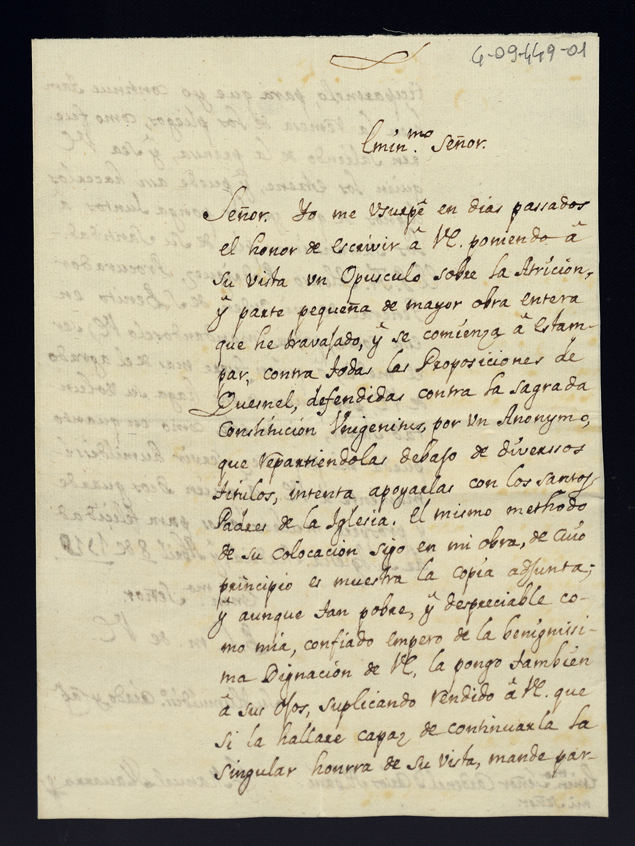 4-09-449-01
Emin.mo Señor.
Señor. Yo me Usurpè en dias passados
el honor de escrivir â VE. poniendo â
su vista un Opusculo sobre la Atricion,
ÿ parte pequeña de mayor obra entera
que he travajado, ÿ se comienza â estam-
par, contra todas las Proposiciones de
Quesnel, defendidas contra la sagrada
Constitucion Unigenitus, por un Anonymo,
que repartiendolas debajo de diverssos
titulos, intenta apoyarlas con los santos
Padres de la Iglesia. El mismo methodo
de su colocacion sigo en mi obra, de cuio
principio es muestra la copia adjunta;
ÿ aunque tan pobre, ÿ despreciable co-
mo mia, confiado empero de la benignissi-
ma Dignacion de VE, la pongo tambien
â sus ojos, suplicando rendido â VE. que
si la hallare capaz de continuarla la
singular honrra de su vista, mande par-